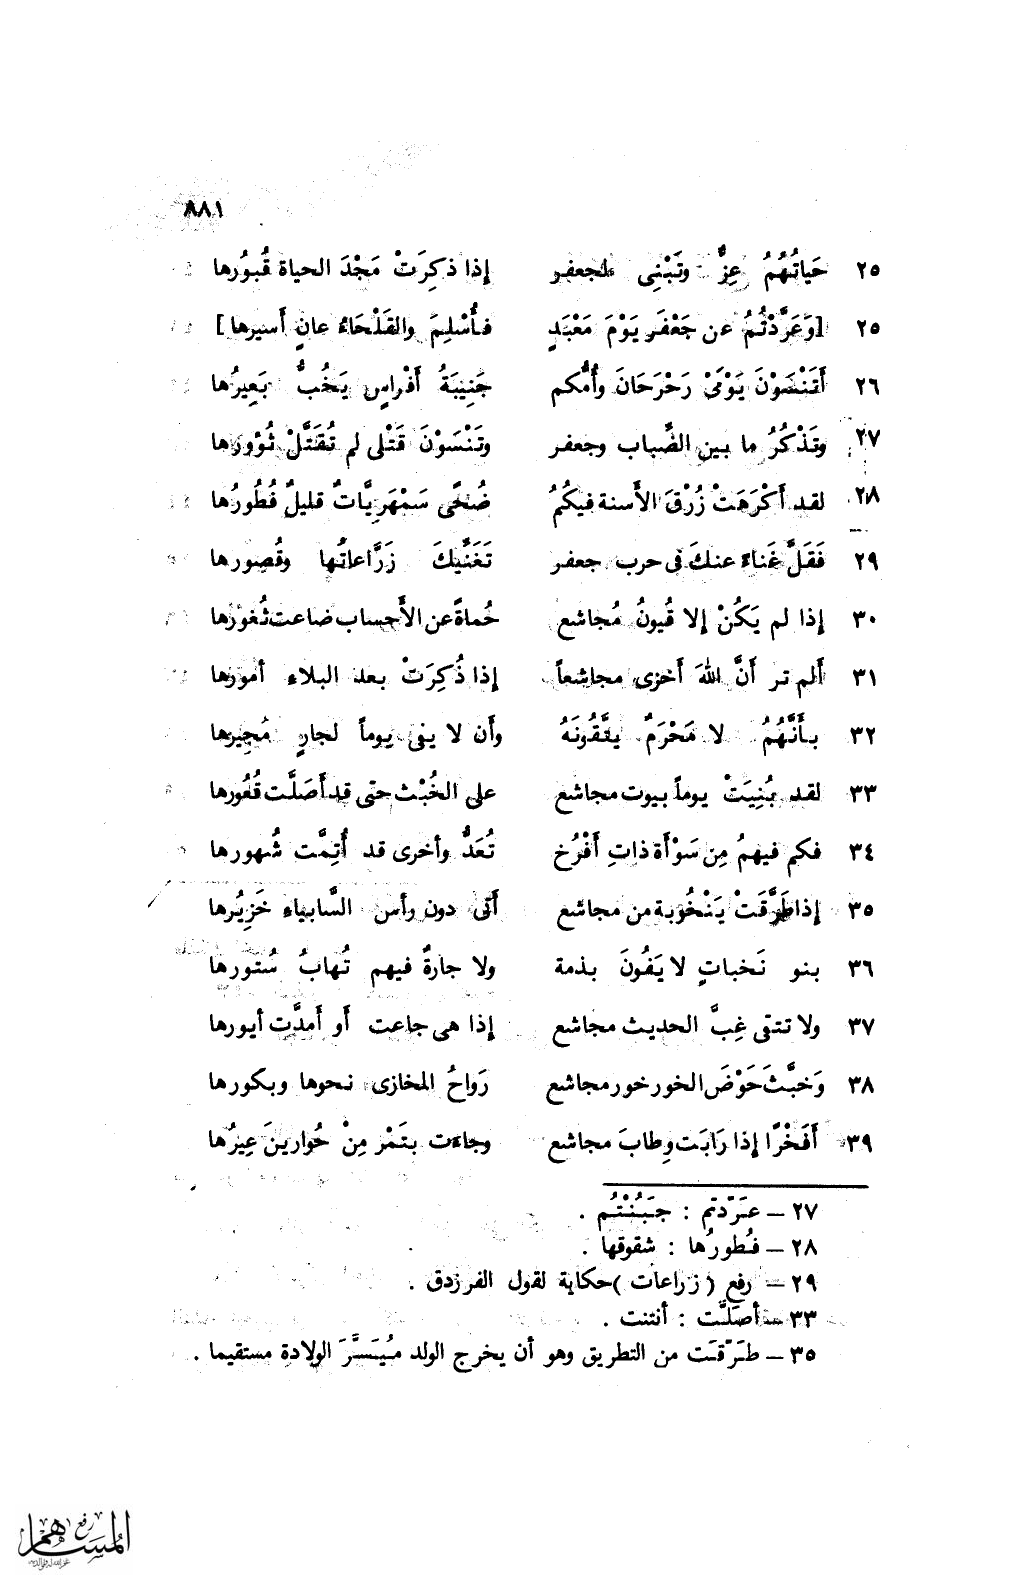 ٨٨١
٢٥ حَياتُهُمُ عِزٌّ وتَبْنِى لجعفر إذا ذكِرَتْ مَجْدَ الحياة قُبُورُها
٢٥ [وَعَرَّدْتُمُ عن جَعْفَر يَوْمَ مَعْبَدٍ فأُسْلِمَ والقَلْحَاءُ عانٍ أَسيرها]
٢٦ أَتَنْسَوْنَ يَوْمَىْ رَحْرَحَانَ وأُمُّكم جَنِيبَةُ أَفْراسٍ يَخُبُّ بَعِيرُها
٢٧ وتَذْكُرُ ما بين الضِّباب وجعفر وتَنْسَوْنَ قَتْلى لم تُقَتَّلْ ثُؤورُها
٢٨ لقد أَكْرَهَتْ زُرْقَ الأسنة فيكُمُ ضُحًى سَمْهَرِيَّاتٌ قليلٌ فُطُورُها
٢٩ فَقَلَّ غَناءً عنكَ فى حرب جعفر تَغَنِّيكَ زَرَّاعاتُها وقُصورها
٣٠ إذا لم يَكُنْ إلا قُيونُ مُجاشع حُماةً عن الأَحساب ضاعت ثُغورُها
٣١ أَلم تر أَنَّ اللهَ أَخزى مجاشعاً إذا ذُكِرَتْ بعد البلاء أمورُها
٣٢ بأَنَّهُمُ لا مَحْرَمٌ يتَّقُونَهُ وأَن لا يفى يوماً لجارٍ مُجِيرها
٣٣ لقد بُنِيَتْ يوماً بيوت مجاشع على الخُبْث حتى قد أَصَلَّت قُعُورها
٣٤ فكم فيهمُ مِن سَوْأَة ذاتِ أَفْرُخ تُعَدُّ وأخرى قد أُتِمَّت شُهورها
٣٥ إذا طَرَّقَتْ يَنْخُوبة من مجاشع أَتى دون رأس السَّابياء خَزِيرُها
٣٦ بنو نَخباتٍ لا يَفُونَ بذمة ولا جارةٌ فيهم تُهابُ سُتورها
٣٧ ولا تتقى غِبَّ الحديث مجاشع إذا هى جاعت أَو أَمدَّت أيورها
٣٨ وَخبَّثَ حَوْضَ الخور خور مجاشع رَواحُ المخازى نحوها وبكورها
٣٩ أَفَخْرًا إذا رَابَت وِطابَ مجاشع وجاءت بتَمْر مِنْ حُوارينَ عِيرُها
٢٧ – عرَّدتم : جَبُنْتُم .
٢٨ – فُطورُها : شقوقها .
٢٩ – رفع (زراعات) حكاية لقول الفرزدق .
٣٣ – أصلَّت : أنتنت .
٣٥ – طرَّقت من التطريق وهو أن يخرج الولد مُيَسَّرَ الولادة مستقيما .
رفع
المساهم